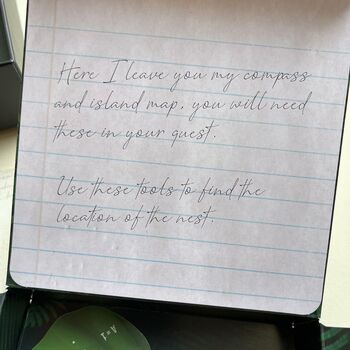 Here I leave you my compass
and island map, you will need
these in your quest.
Use these tools to find the
location of the nest.